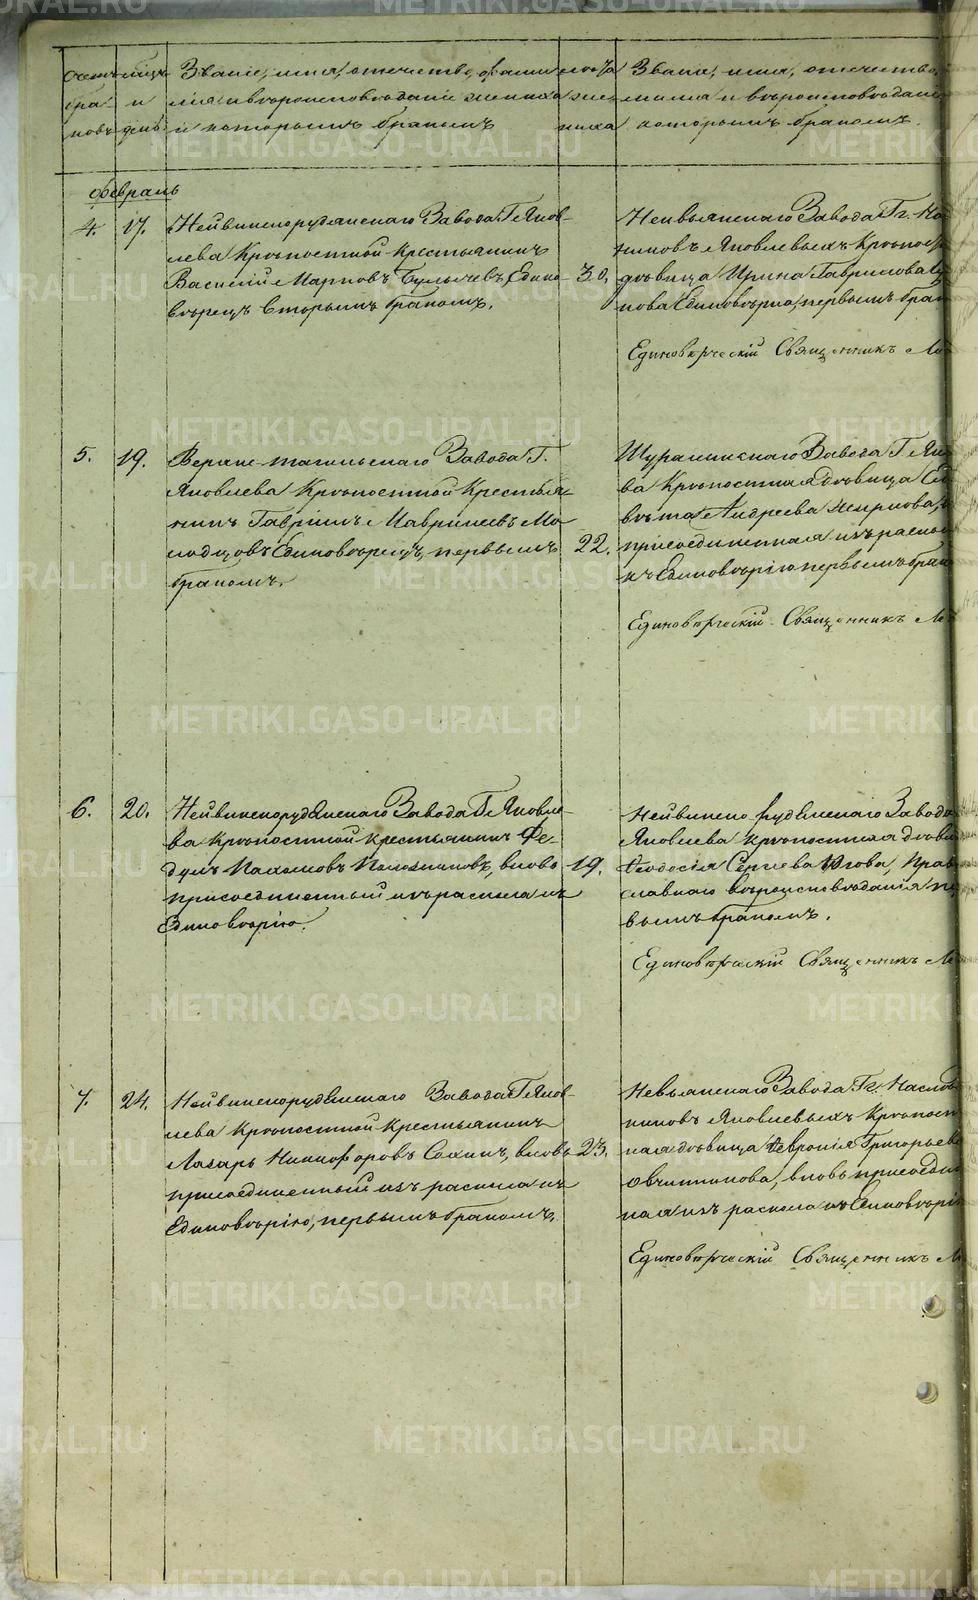 Счетъ мѣсц. Званіе, имя, отечество, фамилія лѣта Званіе, имя, отечество,
бра и лія и вѣроисповѣданіе жениха же милія и вѣроисповѣдані
ковъ день и которымъ бракомъ ниха которымъ бракомъ.
февраль
4. 17. Нейвинскорудянскаго Завода Г. Яков-
лева Крѣпостной крестьянинъ
Василій Марковъ Булычевъ, Едино-
вѣрецъ вторымъ бракомъ.
30.
Невьянскаго Завода Гг.
никовъ Яковлевыхъ Крѣпос
дѣвица Ирина Гаврилова
нова Единовѣрка, первымъ бра
Единовѣрческій Священникъ
5. 19. Верхне-тагильскаго Завода Г.
Яковлева Крѣпостной Крестья-
нинъ Гавріилъ Маврикіевъ Мо
лодцовъ Единовѣрецъ, первымъ
бракомъ.
22.
Шуралинскаго Завода Г. Як
ва Крѣпостная дѣвица Ели
вѣта Андреева Жиркова,
присоединенная изъ раско
къ Единовѣрію первымъ брак
Единовѣрческій Священникъ
6. 20. Нейвинскорудянскаго Завода Г. Яковле-
ва крѣпостной крестьянинъ Фе-
дулъ Пахомовъ Плюхниновъ, вновь
присоединенный изъ раскола къ
Единовѣрію.
19.
Нейвинско рудянскаго Завода
Яковлева крѣпостная дѣви
Ѳеодосія Сергѣева Югова, Прав
славнаго вѣроисповѣданія пе
вымъ бракомъ.
Единовѣрческій Священникъ
7. 24. Нейвинскорудянскаго Завода Г. Яков-
лева Крѣпостной Крестьянинъ
Лазарь Никифоровъ Сохинъ, вновь
присоединенный изъ раскола къ
Единовѣрію, первымъ бракомъ.
23.
Невьянскаго Завода Гг. Наслѣд
никовъ Яковлевыхъ Крѣпост
ная дѣвица Февронія Григорьева
Овчинникова, вновь присоедин
ная изъ раскола къ Единовѣрі
Единовѣрческій Священникъ
METRIKI.GASO-URAL.RU